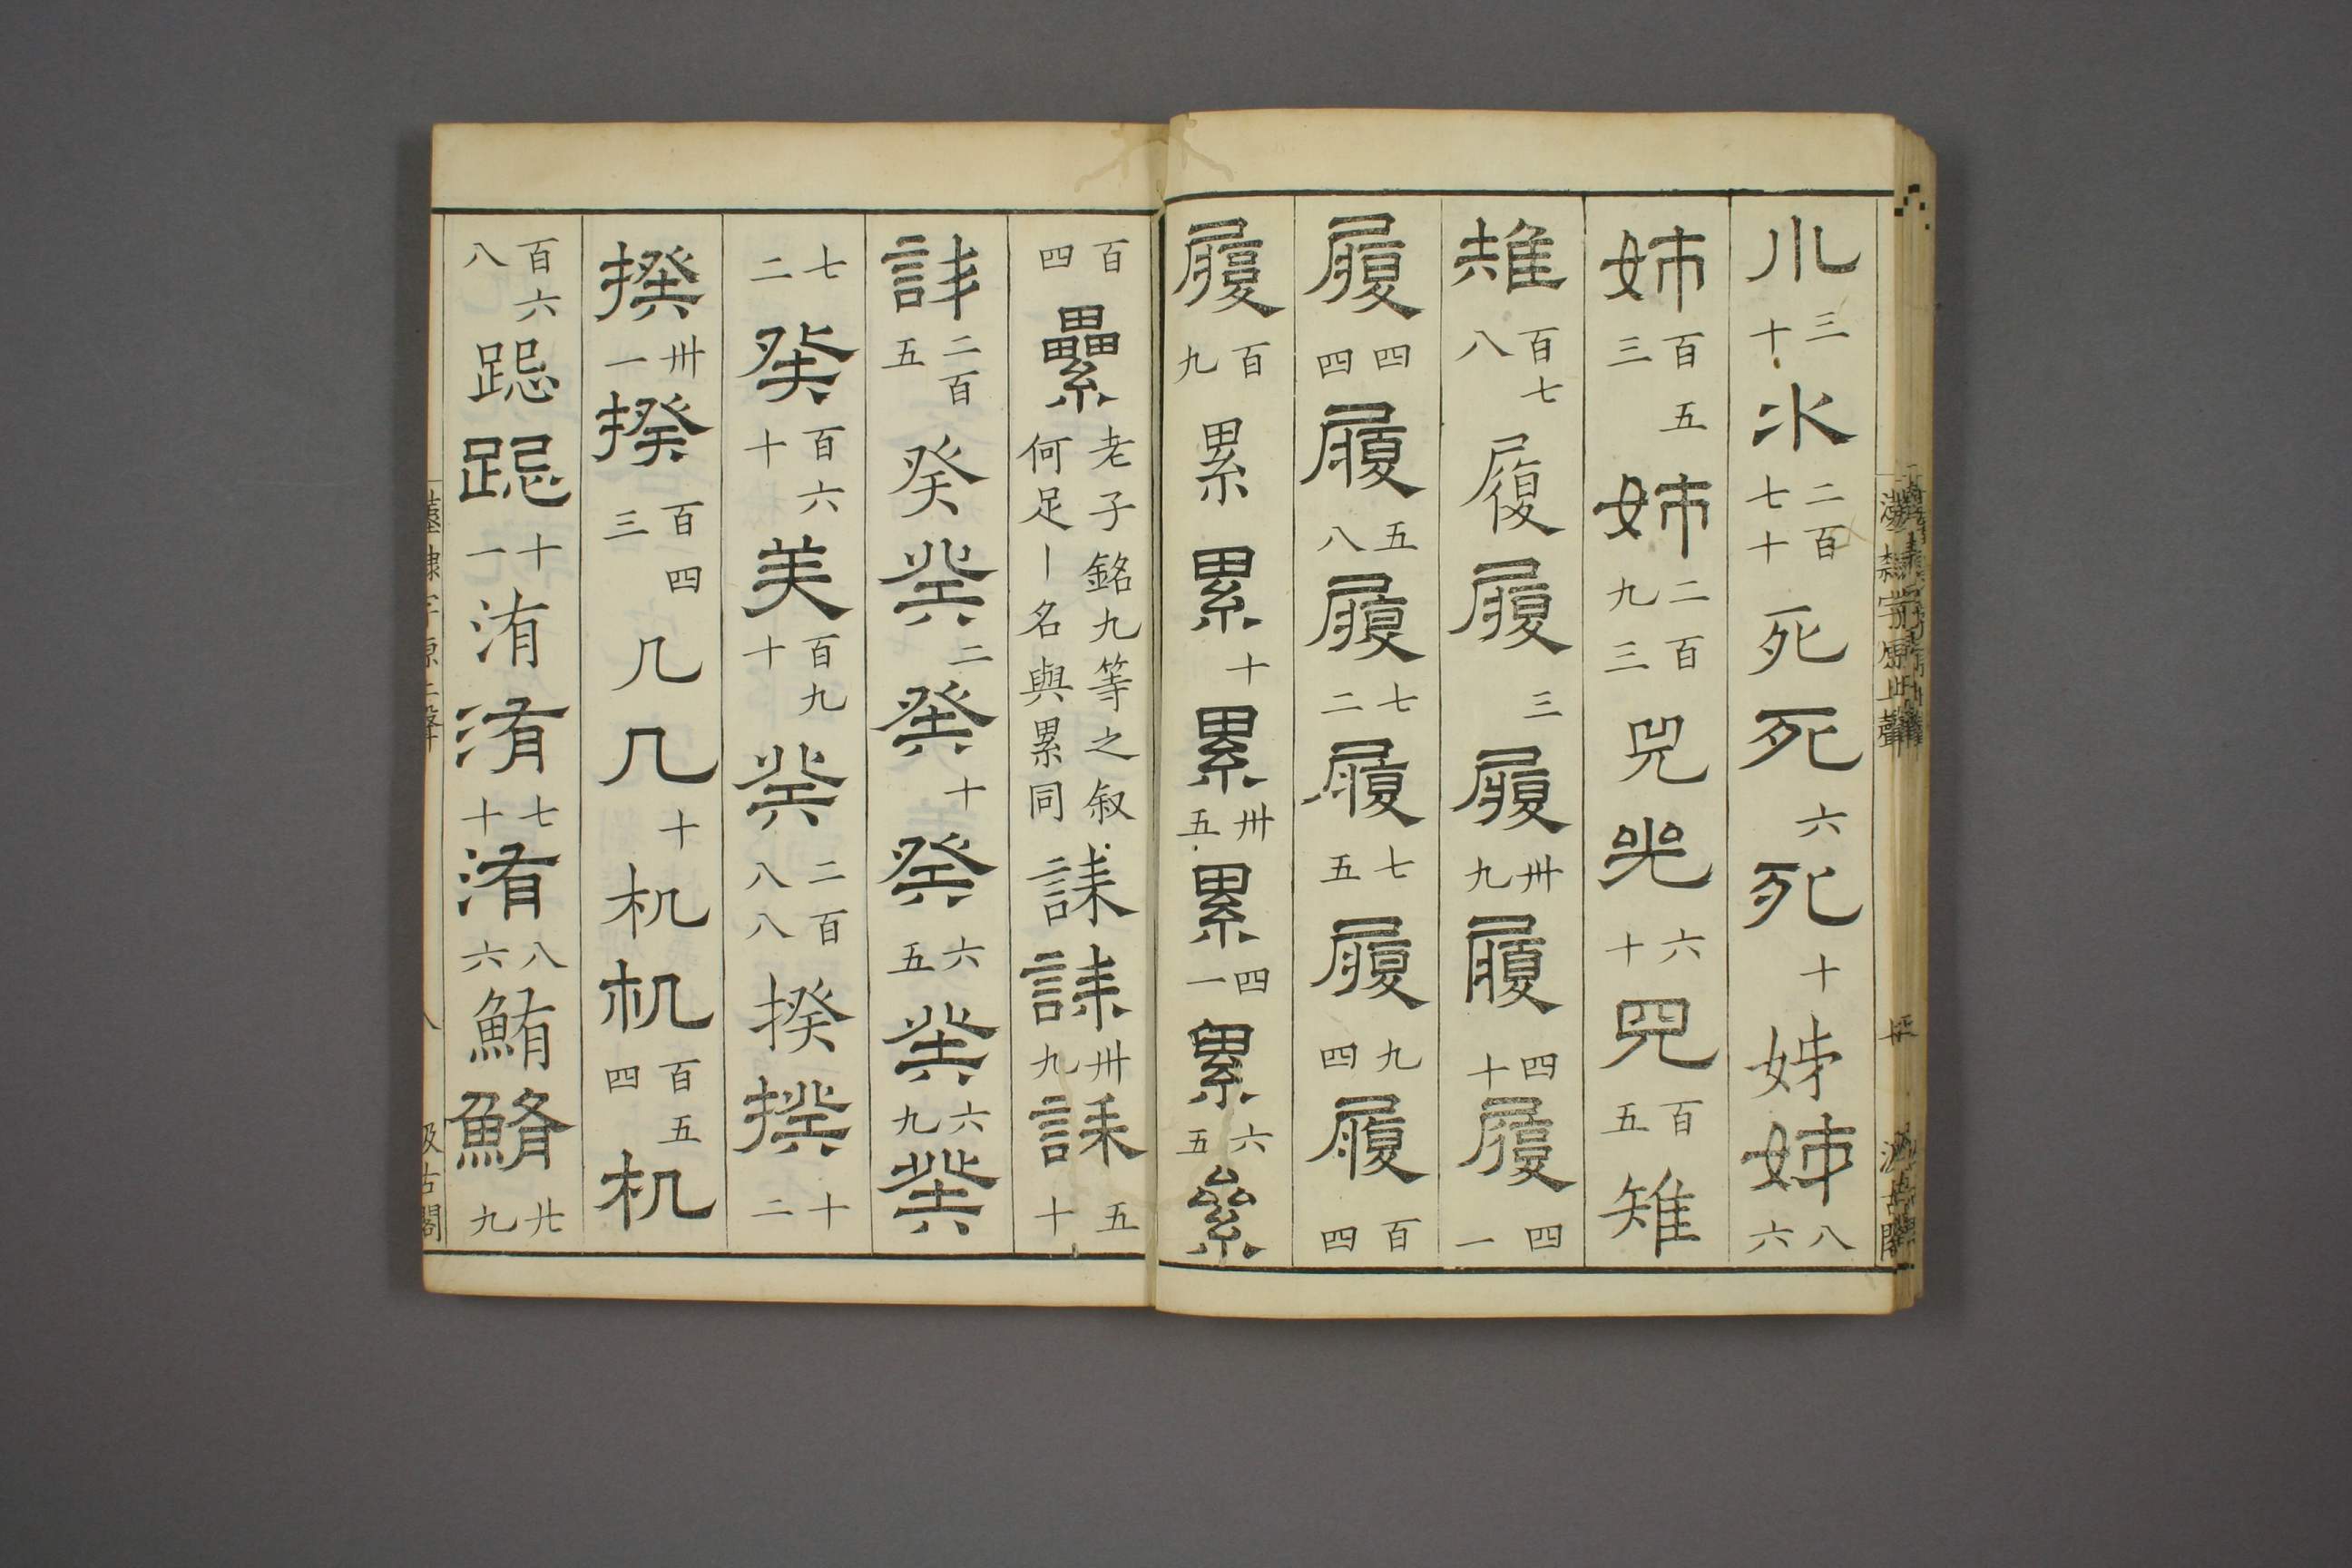 三十 水 二百七十 死 死 六 死 十 姊 姉 八六
姉 百五三 姉 二百九三 兕 光 六十 兕 百五 雉
雉 百七八 履 履 三 履 卅九 履 四十 履 四一
履 四四 履 五八 履 七二 履 七五 履 九四 履 百四
履 百九 累 累 十 累 卅五 累 四一 累 六五
百四 纍 老子銘九等之叙何足丨名與累同 誄 誄 卅九 誄 五十
二百五 癸 癸 二 癸 十 癸 六五 癸 六九 癸
七二 癸 百六十 美 百九十 癸 二百八八 揆 揆 十二
揆 卅一 揆 百四三 几 几 十 机 机 百五四 机
百六八 跽 跽 十一 洧 洧 七十 洧 八六 鮪 鮪 廿九
漢隸字源上聲 八 汲古閣